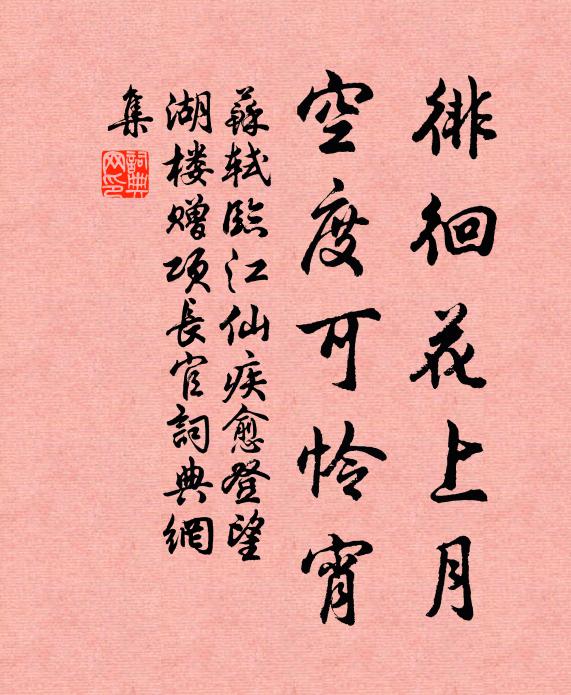 徘徊花上月
空度可怜宵
蘇轼臨江仙疾愈登望
湖楼赠项長官詞典網
集
詞典
网印